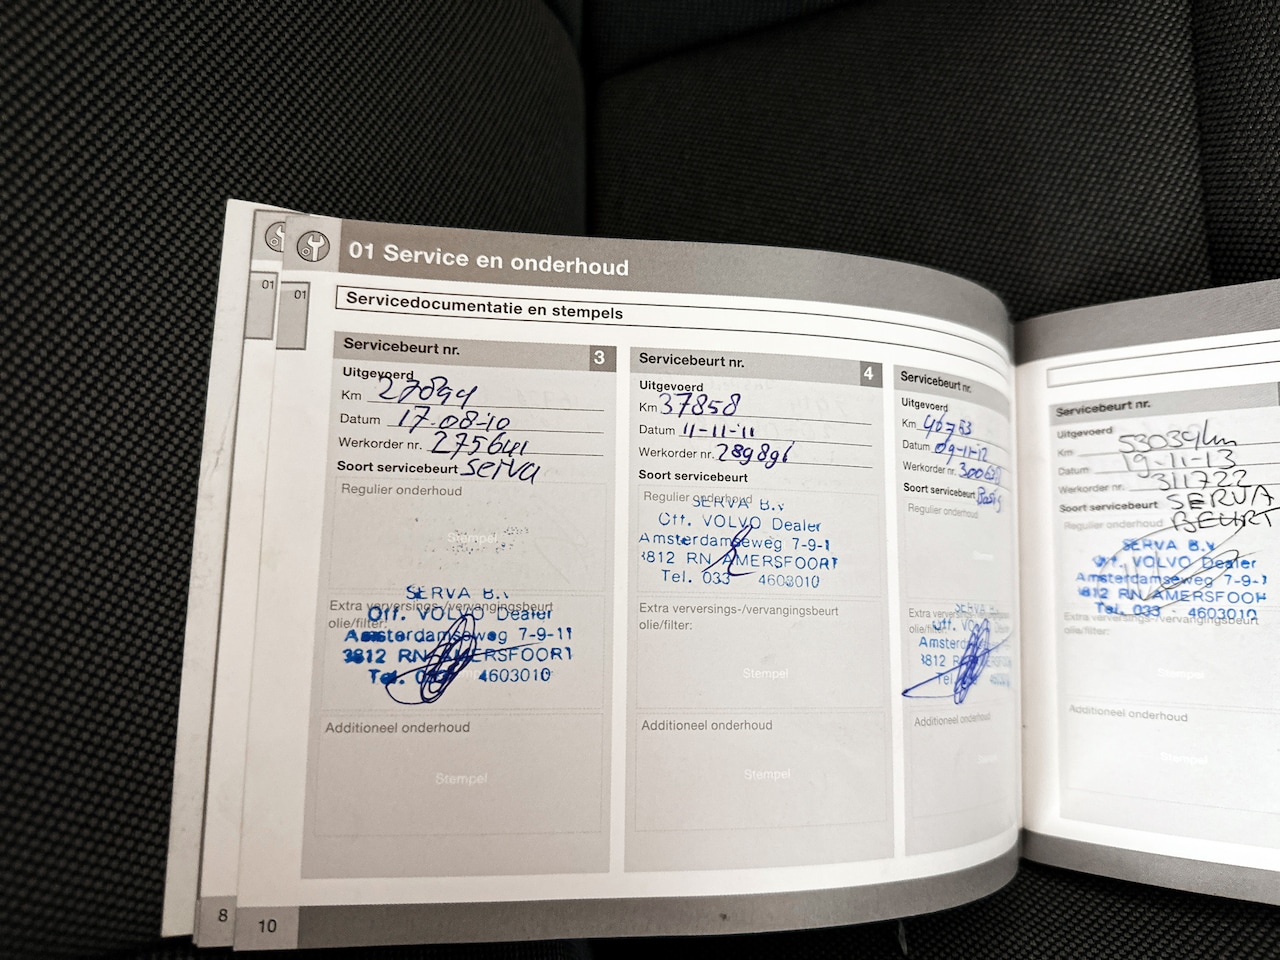 01 Service en onderhoud
01
01
Servicedocumentatie en stempels
Servicebeurt nr. 3
Uitgevoerd
Km 27094
Datum 17-08-'10
Werkorder nr. 275641
Soort servicebeurt Serva
Regulier onderhoud
Stempel
SERVA B.V
Extra verversings-/vervangingsbeurt
olie/filter:
Off. VOLVO Dealer
Amsterdamseweg 7-9-11
3812 RN AMERSFOORT
Tel. 033 4603010
Additioneel onderhoud
Stempel
Servicebeurt nr. 4
Uitgevoerd
Km 37858
Datum 11-11-'11
Werkorder nr. 289896
Soort servicebeurt
Regulier onderhoud
SERVA B.V
Off. VOLVO Dealer
Amsterdamseweg 7-9-1
3812 RN AMERSFOORT
Tel. 033 4603010
Extra verversings-/vervangingsbeurt
olie/filter:
Stempel
Additioneel onderhoud
Stempel
Servicebeurt nr.
Uitgevoerd
Km 46763
Datum 09-11-'12
Werkorder nr.
Soort servicebeurt Basis
Regulier onderhoud
Extra
olie/filter:
SERVA B.
Off. VO
Amsterd
3812 R
Tel. 4603010
Additioneel onderhoud
Servicebeurt nr.
Uitgevoerd
Km 53039km
Datum 19-11-13
Werkorder nr. 311722
Soort servicebeurt SERVA
Regulier onderhoud BEURT
SERVA B.V
Off. VOLVO Dealer
Amsterdamseweg 7-9-1
3812 RN AMERSFOOR
Tel. 033 - 4603010
Extra verversings-/vervangingsbeurt
olie/filter:
Stempel
Additioneel onderhoud
Stempel
8
10